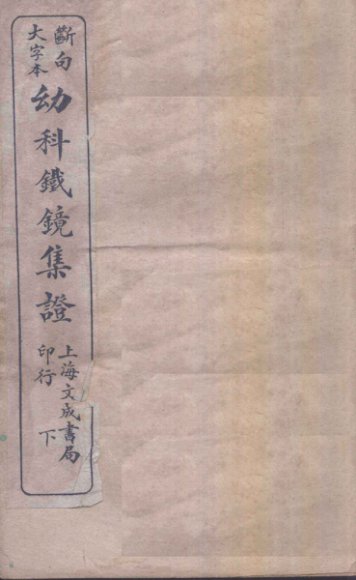 斷句
大字本
幼科鐵鏡集證
上海文成書局
印行
下